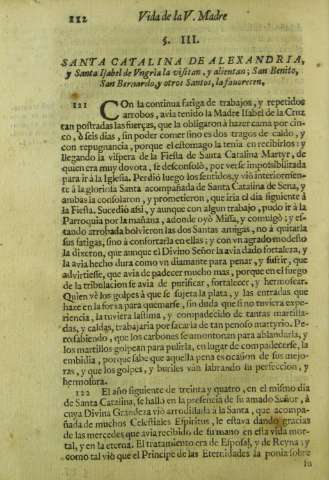 112 Vida de la V. Madre
§. III.
SANTA CATALINA DE ALEXANDRIA,
y Santa Isabel de Vngria la visitan, y alientan; San Benito,
San Bernardo, y otros Santos, la favorecen.
121 COn la continua fatiga de trabajos, y repetidos
arrobos, avia tenido la Madre Isabel de la Cruz
tan postradas las fuerças, que la obligaron à hazer cama por cin-
co, ò seis dias, sin poder comer sino es dos tragos de caldo, y
con repugnancia, porque el estomago la tenia en recibirlos: y
llegando la vispera de la Fiesta de Santa Catalina Martyr, de
quien era muy devota, se desconsolò, por verse impossibilitada
para ir à la Iglesia. Perdiò luego los sentidos, y viò interiormen-
te à la gloriosa Santa acompañada de Santa Catalina de Sena, y
ambas la consolaron, y prometieron, que iria el dia siguiente à
la Fiesta. Sucediò assi, y aunque con algun trabajo, pudo ir à la
Parroquia por la mañana, adonde oyò Missa, y comulgò; y es-
tando arrobada bolvieron las dos Santas amigas, no à quitarla
sus fatigas, sino à confortarla en ellas; y con vn agrado modesto
la dixeron, que aunque el Divino Señor la avia dado fortaleza, y
la avia hecho dura como vn diamante para penar, y sufrir, que
advirtiesse, que avia de padecer mucho mas, porque en el fuego
de la tribulacion se avia de purificar, fortalecer, y hermosear.
Quien vè los golpes à que se sujeta la plata, y las entradas que
haze en la forxa para quemarse, sin duda que si no tuviera expe-
riencia, la tuviera lastima, y compadecido de tantas martilla-
das, y caldas, trabajaria por sacarla de tan penoso martyrio. Pe-
ro sabiendo, que los carbones se amontonan para ablandarla, y
los martillos golpean para pulirla, en lugar de compadecerse, la
embidia, porque sabe que aquella pena es ocasion de sus mejo-
ras, y que los golpes, y buriles vàn labrando su perfeccion, y
hermosura.
122 El año siguiente de treinta y quatro, en el mismo dia
de Santa Catalina, se hallò en la presencia de su amado Señor, à
cuya Divina Grandeza viò arrodillada à la Santa, que acompa-
ñada de muchos Celestiales Espiritus, le estava dando gracias
de las mercedes que avia recibido de su mano en esta vida mor-
tal, y en la eterna. El tratamiento era de Esposa, y de Reyna; y
como tal viò que el Principe de las Eternidades la ponia sobre